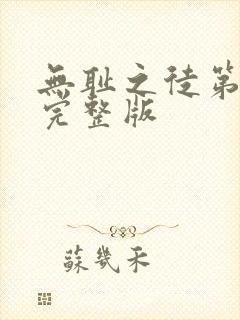 無耻之徒第
完整版
蘇幾禾